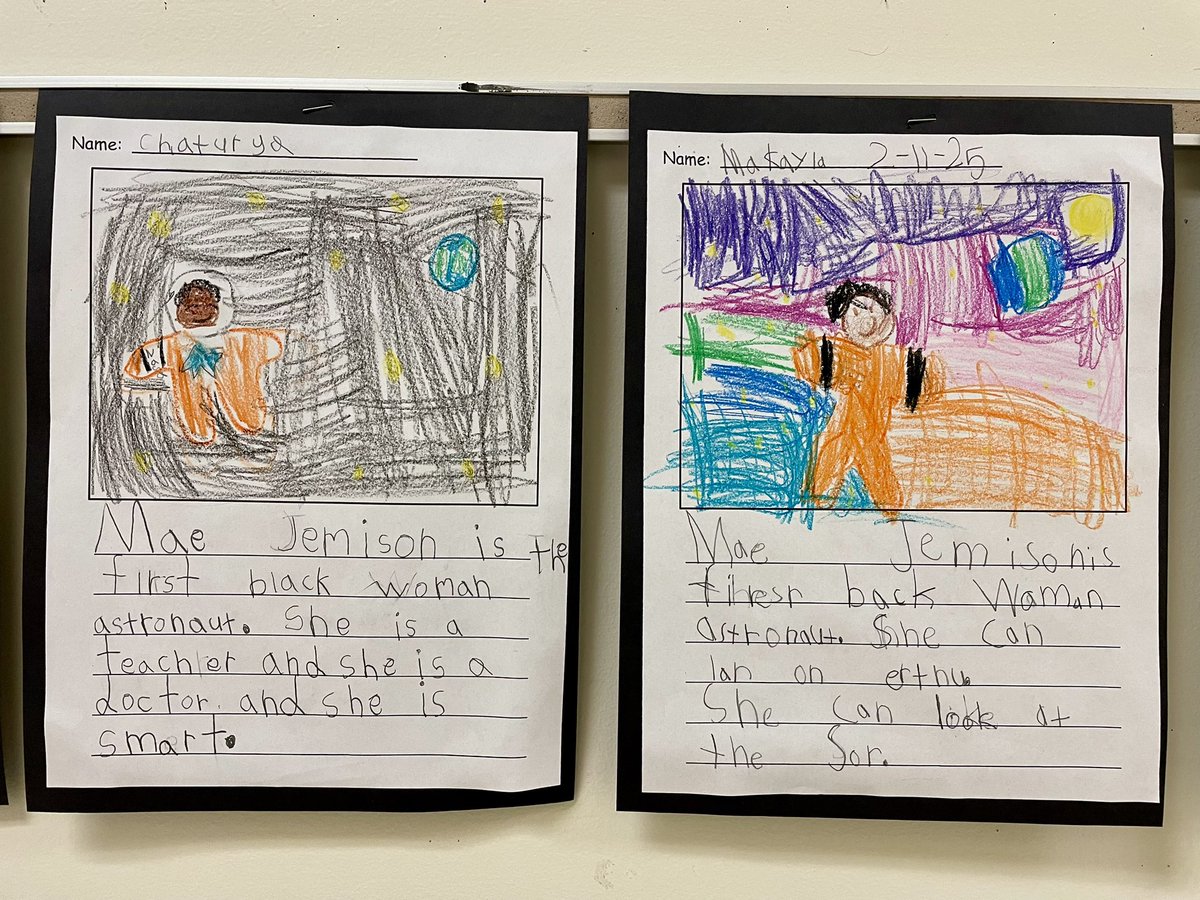 Name: Chaturya
Mae Jemison is the
first black woman
astronaut. She is a
teachler and she is a
doctor. and she is
smart.
Name: Makayla 2-11-25
Mae Jemison is
firesr back Waman
astronaut. She can
lan on erthu.
She can look at
the Sor.